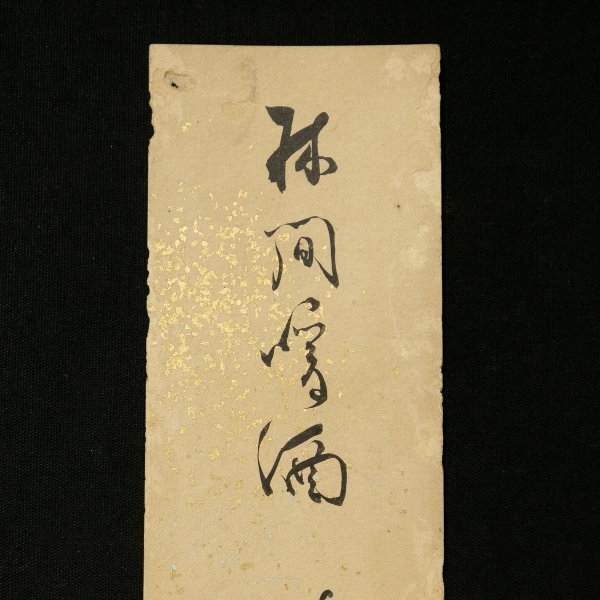 林間煖酒